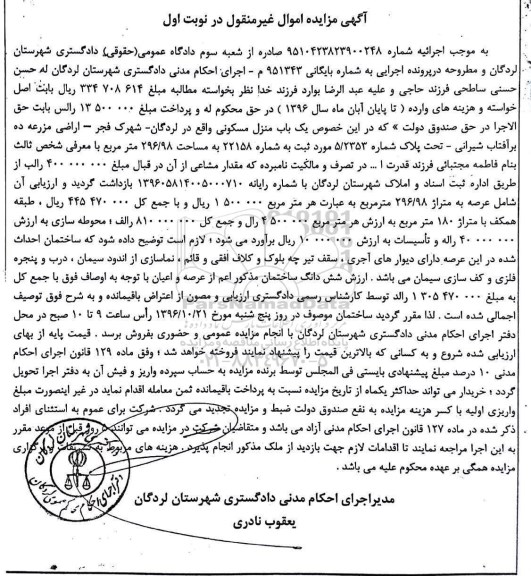 آگهی مزایده اموال غیرمنقول در نوبت اول
به موجب اجرائیه شماره ۹۵۱۰۴۲۳۸۲۳۹۰۰۲۴۸ صادره از شعبه سوم دادگاه عمومی(حقوقی) دادگستری شهرستان
لردگان و مطروحه درپرونده اجرایی به شماره بایگانی ۹۵۱۳۴۳ م - اجرای احکام مدنی دادگستری شهرستان لردگان له حسن
حسنی ساطحی فرزند حاجی و علیه عبد الرضا بوارد فرزند خدا نظر بخواسته مطالبه مبلغ ۶۱۴ ۷۰۸ ۳۳۴ ریال بابت اصل
خواسته و هزینه های وارده ( تا پایان آبان ماه سال ۱۳۹۶ ) در حق محکوم له و پرداخت مبلغ ۰۰۰ ۵۰۰ ۱۳ رالس بابت حق
الاجرا در حق صندوق دولت » که در این خصوص یک باب منزل مسکونی واقع در لردگان- شهرک فجر – اراضی مزرعه ده
برآفتاب شیرانی - تحت پلاک شماره ۵/۲۳۵۳ مورد ثبت به شماره ۲۲۱۵۸ به مساحت ۲۹۶/۹۸ متر مربع با معرفی شخص ثالث
بنام فاطمه مجتبائی فرزند قدرت ا ... در تصرف و مالکیت نامبرده که مقدار مشاعی از آن در قبال مبلغ ۰۰۰ ۰۰۰ ۴۰۰ رالب از
طریق اداره ثبت اسناد و املاک شهرستان لردگان با شماره رایانه ۱۳۹۶۰۵۸۱۴۰۰۵۰۰۰۷۱۰ بازداشت گردید و ارزیابی آن
شامل عرصه به متراژ ۲۹۶/۹۸ مترمربع به عبارت هر متر مربع ۰۰۰ ۵۰۰ ۱ ریال و با جمع کل ۰۰۰ ۴۷۰ ۴۴۵ ریال ، طبقه
همکف با متراژ ۱۸۰ متر مربع به ارزش هر متر مربع ۰۰۰ ۵۰۰ ۴ رال و جمع کل ۰۰۰ ۰۰۰ ۸۱۰ رالف ؛ محوطه سازی به ارزش
۰۰۰ ۰۰۰ ۴۰ راله و تأسیسات به ارزش ۰۰۰ ۰۰۰ ۱۰ ریال برآورد می شود ؛ لازم است توضیح داده شود که ساختمان احداث
شده در این عرصه دارای دیوار های آجری ، سقف تیر چه بلوک و کلاف افقی و قائم ، نماسازی از اندود سیمان ، درب و پنجره
فلزی و کف سازی سیمان می باشد . ارزش شش دانگ ساختمان مذکور اعم از عرصه و اعیان با توجه به اوصاف فوق با جمع کل
به مبلغ ۰۰۰ ۴۷۰ ۳۰۵ ۱ رالد توسط کارشناس رسمی دادگستری ارزیابی و مصون از اعتراض باقیمانده و به شرح فوق توصیف
اجمالی شده است . لذا مقرر گردید ساختمان موصوف در روز پنج شنبه مورخ ۱۳۹۶/۱۰/۲۱ رأس ساعت ۹ تا ۱۰ صبح در محل
دفتر اجرای احکام مدنی دادگستری شهرستان لردگان با انجام مزایده عمومی و حضوری بفروش برسد . قیمت پایه از بهای
ارزیابی شده شروع و به کسانی که بالاترین قیمت را پیشنهاد نمایند فروخته خواهد شد ؛ وفق ماده ۱۲۹ قانون اجرای احکام
مدنی ۱۰ درصد مبلغ پیشنهادی بایستی فی المجلس توسط برنده مزایده به حساب سپرده واریز و فیش آن به دفتر اجرا تحویل
گردد ؛ خریدار می تواند حداکثر یکماه از تاریخ مزایده نسبت به پرداخت باقیمانده ثمن معامله اقدام نماید در غیر اینصورت مبلغ
واریزی اولیه با کسر هزینه مزایده به نفع صندوق دولت ضبط و مزایده تجدید می گردد . شرکت برای عموم به استثنای افراد
ذکر شده در ماده ۱۲۷ قانون اجرای احکام مدنی آزاد می باشد و متقاضیان شرکت در مزایده می توانند روز قبل از موعد مقرر
به این اجرا مراجعه نمایند تا اقدامات لازم جهت بازدید از ملک مذکور انجام پذیرد . هزینه های مربوط به
مزایده همگی بر عهده محکوم علیه می باشد .
مدیراجرای احکام مدنی دادگستری شهرستان لردگان
یعقوب نادری